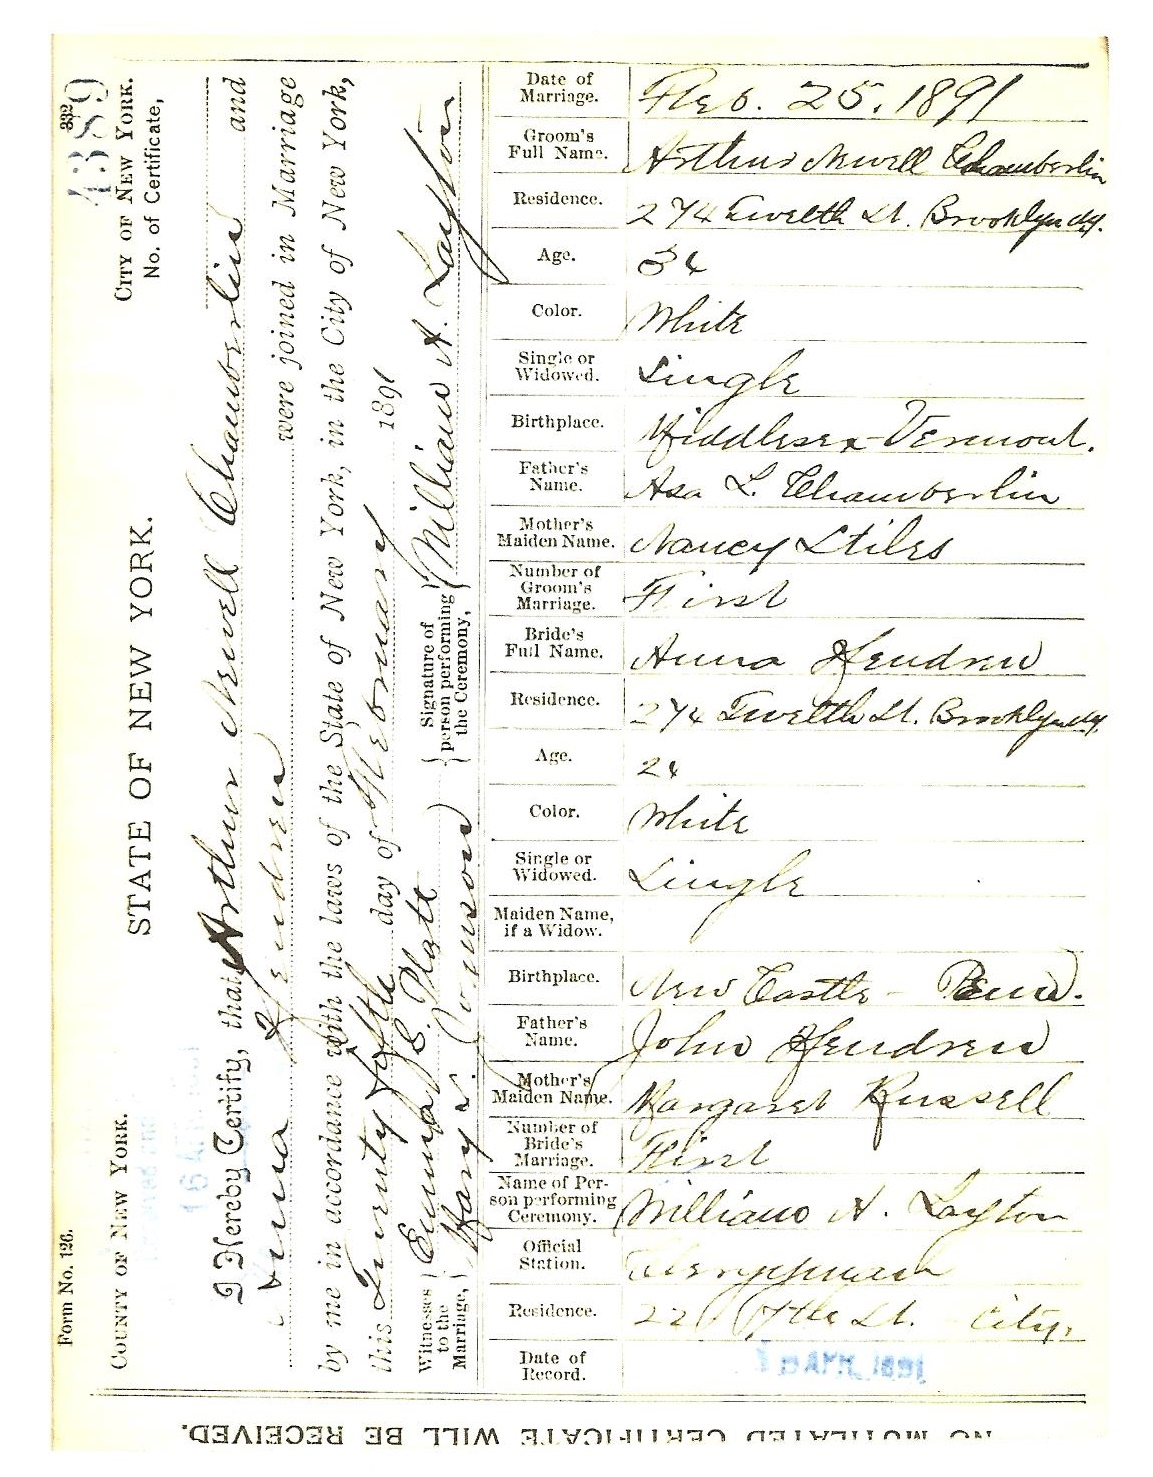 Form No. 126.
COUNTY OF NEW YORK.
STATE OF NEW YORK.
CITY OF NEW YORK.
No. of Certificate,
332
4389
I Hereby Certify, that Arthur Newell Chamberlin and
Anna Hendren were joined in Marriage
by me in accordance with the laws of the State of New York, in the City of New York,
this Twenty fifth day of February 1891
Witnesses to the Marriage,
Emma E. Platt
Mary
Signature of person performing the Ceremony,
William A. Layton
Date of Marriage. Feb. 25. 1891
Groom's Full Name. Arthur Newell Chamberlin
Residence. 274 Twelth St. Brooklyn
Age. 34
Color. White
Single or Widowed. Single
Birthplace. Middlesex Vermont.
Father's Name. Asa L. Chamberlin
Mother's Maiden Name. Nancy Stiles
Number of Groom's Marriage. First
Bride's Full Name. Anna Hendren
Residence. 274 Twelth St. Brooklyn
Age. 24
Color. White
Single or Widowed. Single
Maiden Name, if a Widow.
Birthplace. New Castle - Penn.
Father's Name. John Hendren
Mother's Maiden Name. Margaret Russell
Number of Bride's Marriage. First
Name of Person performing Ceremony. William A. Layton
Official Station. Clergyman
Residence. 221 17th St. City.
Date of Record. APR. 1891
NO MUTILATED CERTIFICATE WILL BE RECEIVED.